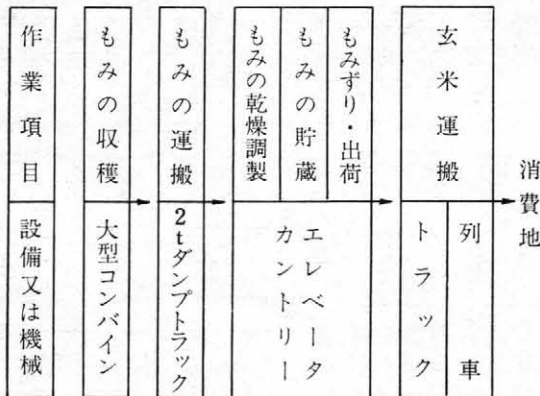 作業項目
設備又は機械
もみの収穫
大型コンバイン
もみの運搬
2tダンプトラック
もみの乾燥調製
もみの貯蔵
もみずり・出荷
カントリー
エレベータ
玄米運搬
トラック
列車
消費地